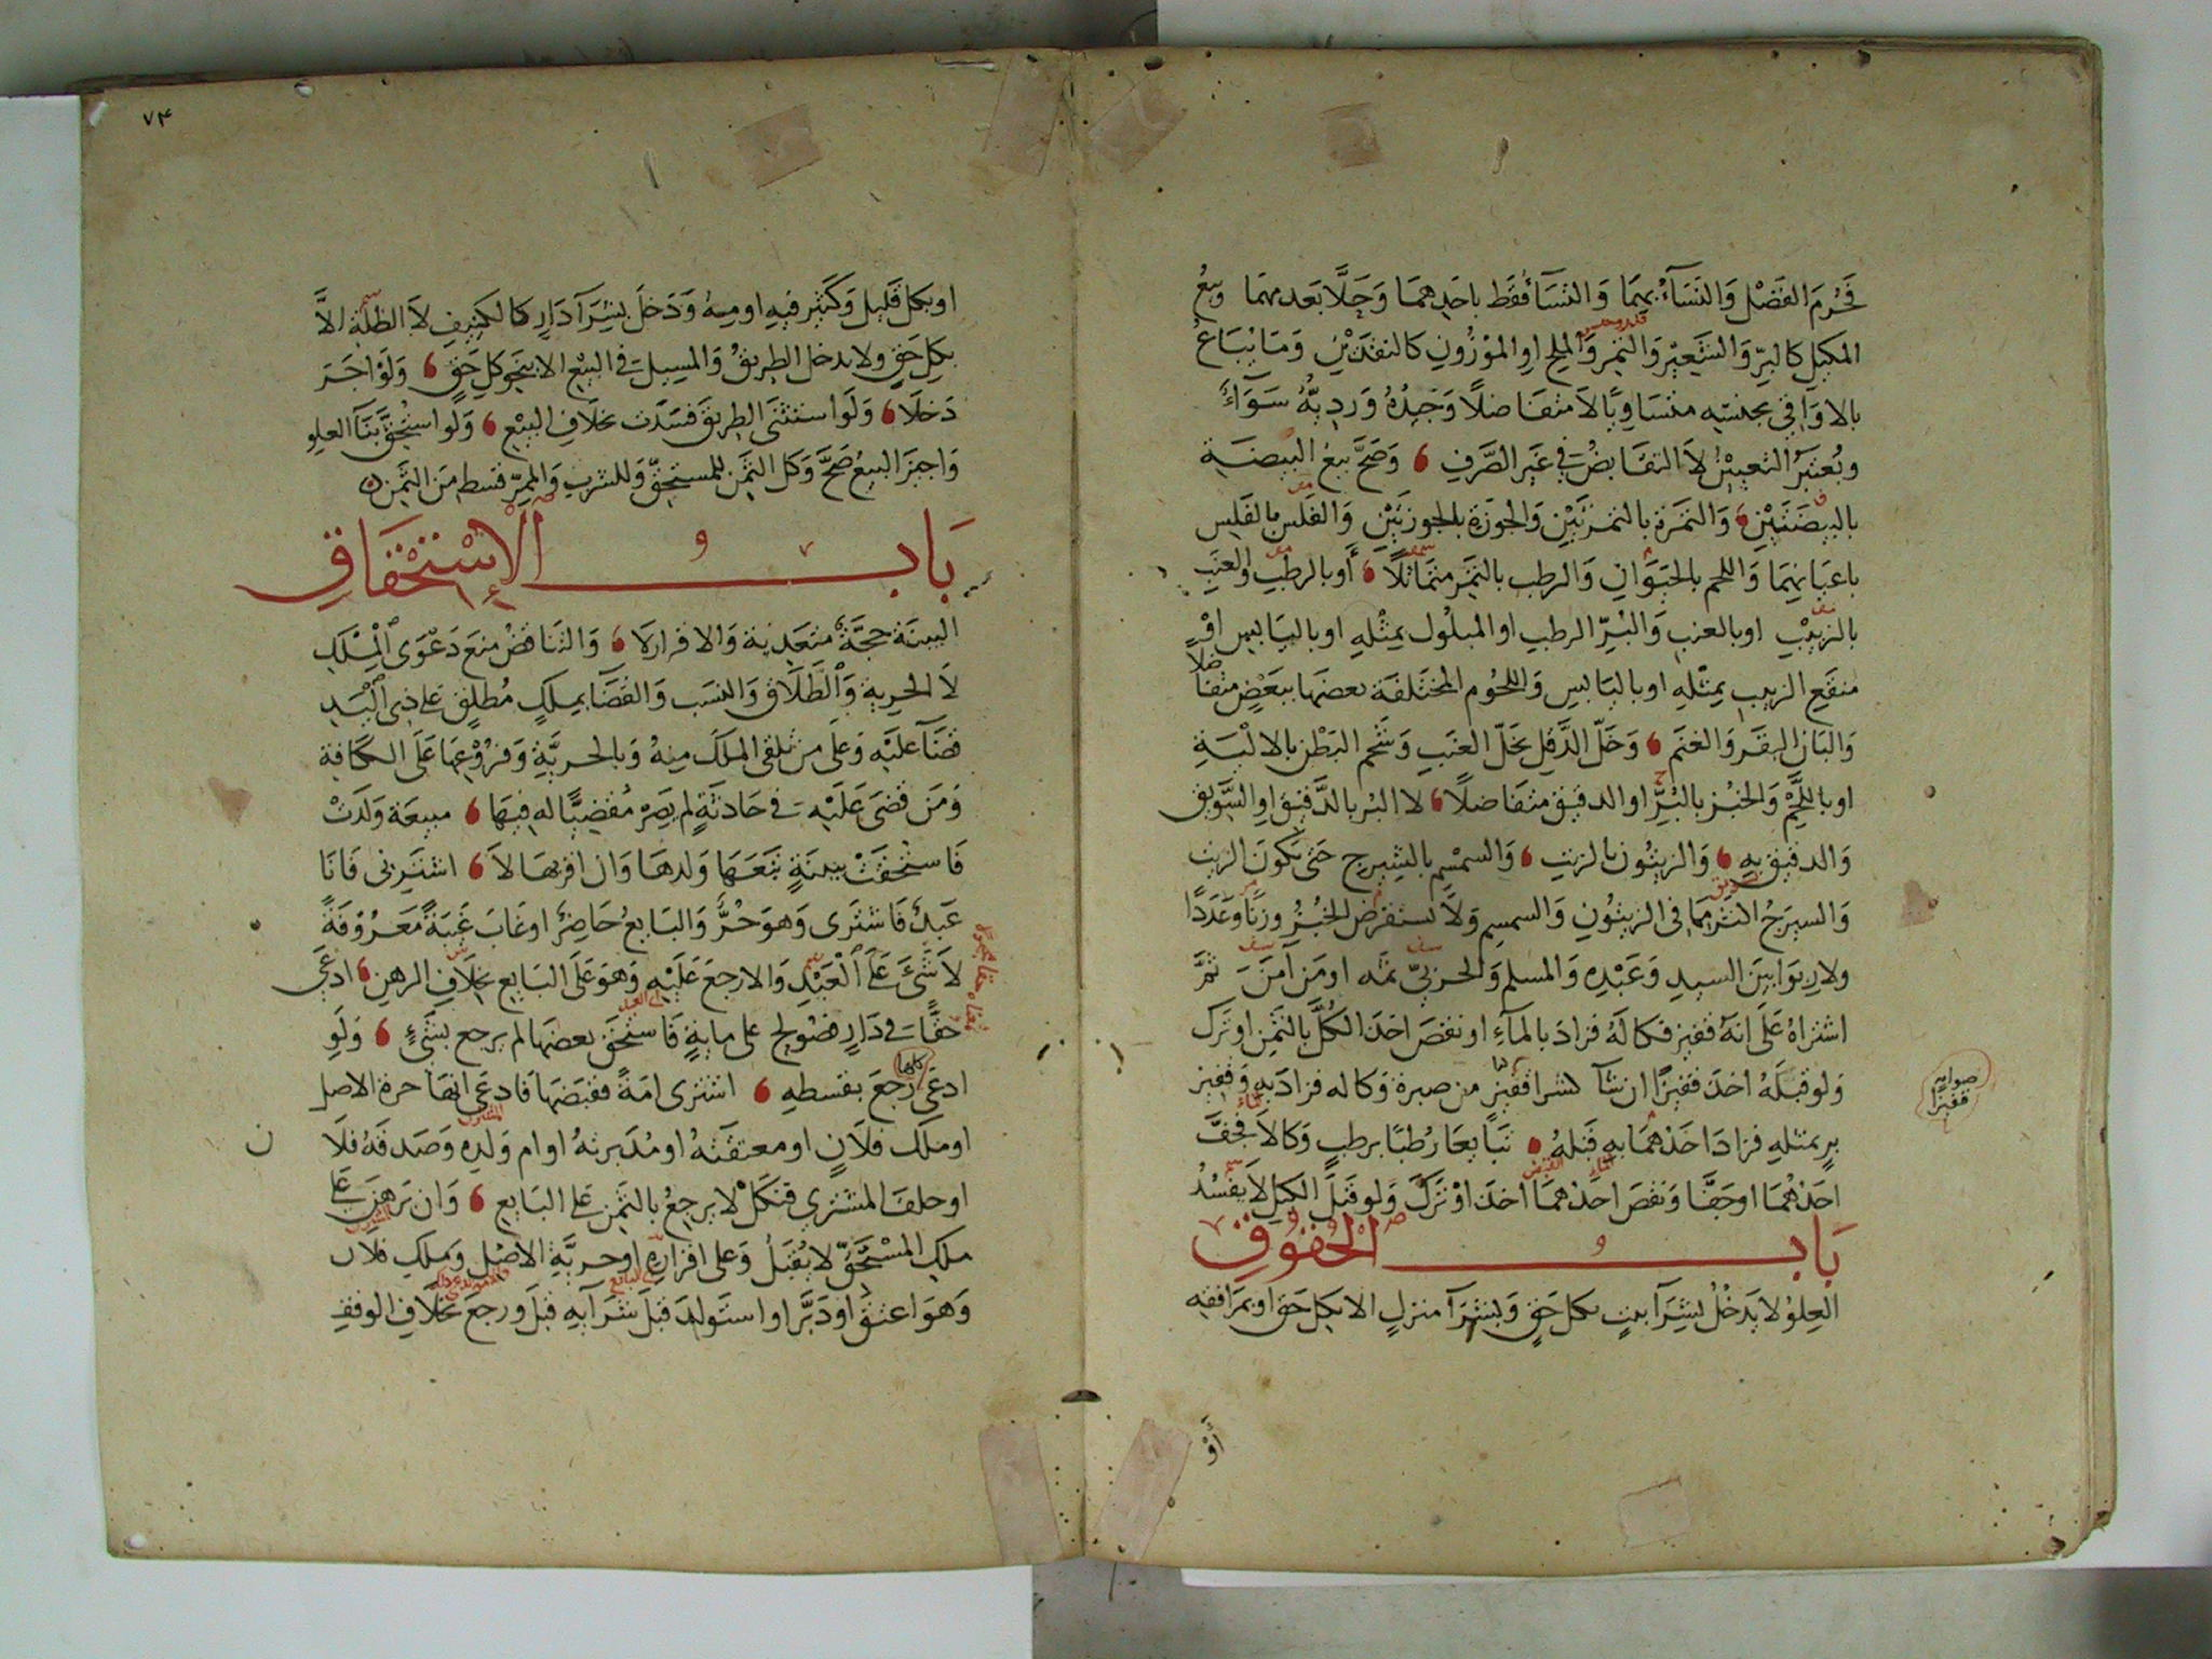 فَحُرِّمَ الفَضْل وَالنَسَآءُ بِهِمَا وَالنَسَا فَقَط باحَدِهِمَا وَحَلَّا بَعدمهمَا وبيعُ
المكيل كالبرّ وَالشَعيْر وَالتمر وَالملح اوِ الموْزُونِ كالنقدَيْن وَمَا يُبَاعُ
بالاوَاقى بجنسه متسَاويًا لاَ متفَاضلاً وَجيدُهُ وَرديّهُ سَوَاءٌ
ويُعتبرُ التعييْنُ لاَ التقَابضُ فى غَير الصَّرفِ وَصَحَّ بيعُ البيضَة
بالبيضَتَيْنِ وَالتمَرة بالتمرَتَيْنِ وَالجوزَة بالجوزتَيْنِ وَالفَلس بالفَلسين
باعيَانهمَا وَاللحم بالحيَوَانِ وَالرطب بالتمَر متماثلاً أَو بالرطبِ والعنَبِ
بالزبيْبِ او بالعنبِ وَالبُرّ الرطبِ او المبلُول بمِثْلهِ او باليَابس اوْ
منقع الزبيب بمثلهِ او باليَابس وَاللحُوم المختَلفَة بعضهَا ببَعْضٍ متفاضلاً
وَالبَان البقَر وَالغنَم وَخَلّ الدَّقل بخلّ العنَبِ وَشَحم البَطْن بالالْيَةِ
او باللَّحْم وَالخبْز بالبُرِّ او الدقيق متفَاضلاً لا البر بالدَّقيق اوِ السَّويق
وَالدقيق بهِ وَالزيتُون بالزيتِ وَالسمْسم بالشيرج حَتى يكونَ الزيت
وَالسيرَجُ اكثر ممَا فى الزيتُونِ وَالسمسم وَلاَ يستقرضُ الخبُزُ وزنًا وعَدَدًا
ولا ربوَا بيَن السيدِ وَعَبْدِهِ وَالمسلم وَالحربىّ ثمه او مَن آمَنَ ثَمَّ
اشتراهُ عَلَى انهُ قفيز فكالَهُ فزادَ بالمآءِ او نقصَ اخذَ الكُلَّ بالثمن او تَركَ
وَلو قبلَهُ اخذَ قفيزًا ان شآ لشرا قفيزٍ من صبرة وَكاله فزادَ بهِ وَقفيز
برٍ بمثلهِ فزادَ احَدهمَا بهِ قبلهُ تبَايعَا رُطبًا برطبٍ وَكالاَ فجَفَّ
احَدهُمَا اوجَفَّا وَنقصَ احَدهمَا اخذَ اوْ تَرَكَ وَلو قبلَ الكيل لاَ يفسُدُ
صوابه
قفيزا
بَابُ الحُقُوقِ
العِلوُ لا يَدخُلُ بشِرَآ بيتٍ بكل حَقٍ وَبشرَآ منزلٍ الا بكل حَق او بمرَافقه
أَوْ
٧٤
او بكل قَليل وَكَثير فيهِ او منهُ وَدَخلَ بشرَآ دَارٍ كالكنيفِ لاَ الظلَّة الاَّ
بكِل حَقٍ ولا يدخل الطريقُ وَالمسيل فى البيْع الا بنحو كل حَقٍ وَلَوْ اجَرَ
دَخلاَ وَلَو استثنَى الطريقَ فسَدَت بخلاَفِ البيْع وَلَو استُحِقَّ بنَآ العلو
وَاجيزَ البيعُ صَحَّ وَكل الثمَن للمستحِقّ وَللشربِ وَالممرّ قسط منَ الثمَن
بَابُ الإسْتِحْقَاقِ
البينَة حجَّةٌ متعَدية وَالاقرار لا وَالتناقضُ منعَ دَعْوَى الْمِلْك
لاَ الحرية وَالطَّلاَق وَالنسَب وَالقضَا بملكٍ مُطلقٍ عَلى ذِى الْيَدِ
قضَآ علَيْه وَعلَى من تلقى الملكَ منهُ وَبالحريَّةِ وَفرُوْعِهَا عَلَى الكافة
وَمَن قضَى عَلَيْهِ فى حَادثَةٍ لم يَصِرْ مُقضِيًّا له فيهَا مبيعَة وَلَدَتْ
فَاستُحقَتْ ببينَةٍ تبَعَهَا وَلدهَا وَان اقرّ بهَا لاَ اشتَرِنى فَانَا
عَبدٌ فَاشتَرى وَهوَ حُرٌّ وَالبَايعُ حَاضِرٌ او غَابَ غَيبَةً مَعرُوْفَةً
لاَ شَىْءَ عَلَى الْعَبْدِ وَالا رجعَ عَلَيْهِ وَهوَ عَلَى البَايع بخلاَفِ الرهنِ ادعَى
حقًّا فى دَارٍ فصُولح على مايةٍ فَاستُحقَ بعضهَا لم يرجع بشَئٍ وَلَوِ
ادعَى كلها رَجعَ بقسطهِ اشترى امَةً فقبضَهَا فَادعَى انهَا حرة الاصل
او ملكَ فلاَنٍ او معتقَتهُ او مُدَبرتهُ او ام وَلدِه وَصَدقَهُ فلاَن
او حلفَ المشترِي فنكَلَ لا يرجعُ بالثَمن عَلى البَايع وَان بَرهَنَ عَلى
ملكِ المسْتَحقّ لا يُقبَلُ وَعلى اقرَاره او حريَّةِ الاصْل وَملكِ فلان
وَهوَ اعتقَ او دَبَّرَ او استَولدَ قبلَ شرَآيهِ قبلَ ورجعَ بخلاَفِ الوقفِ